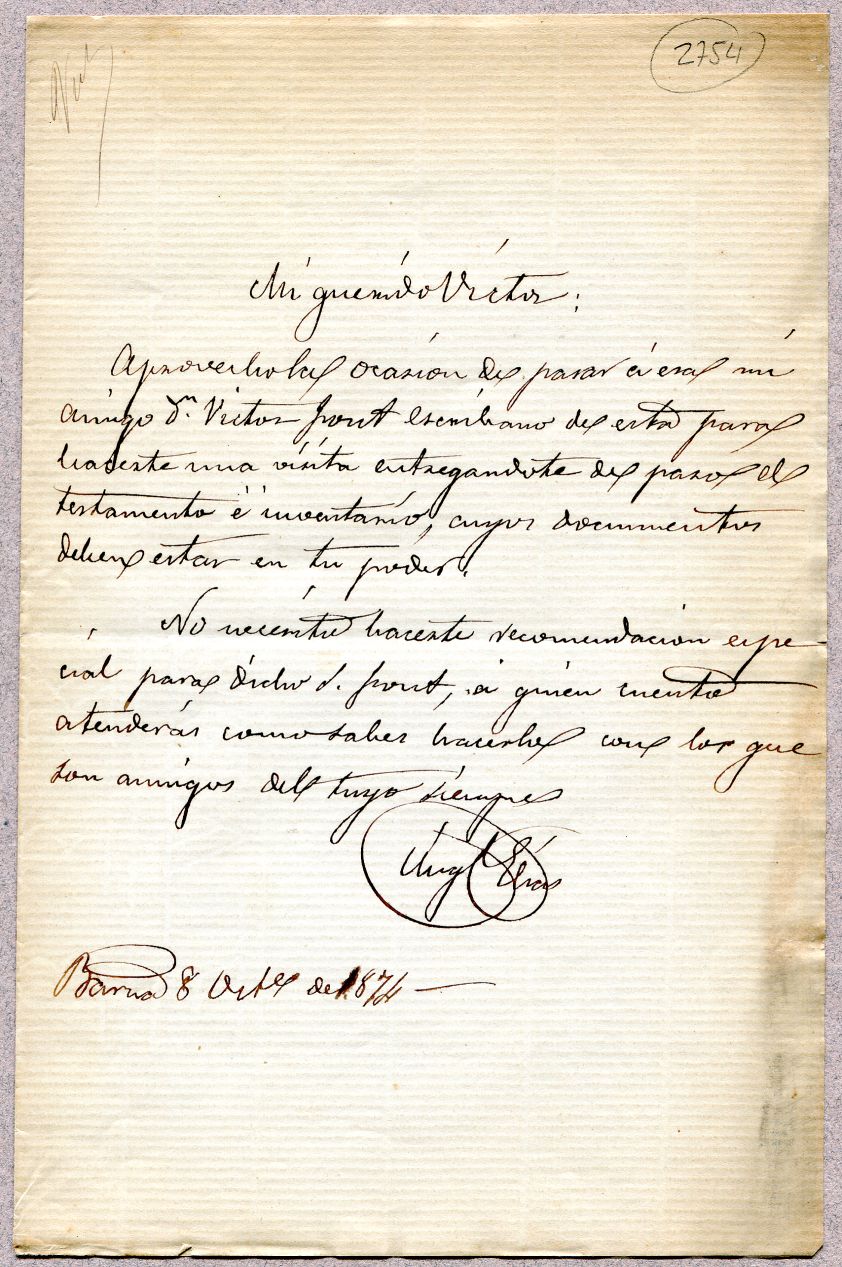 2754
Mi querido Victor:
Aprovecho la ocasion de pasar á esa mi
amigo Dn. Victor Font Escribano de esta para
hacerte una visita entregandote de paso el
testamento é inventario, cuyos documentos
deben estar en tu poder.
No necesito hacerte recomendacion espe-
cial para dicho S. Font, á quien cuento
atenderás como sabes hacerlo con los que
son amigos del tuyo siempre
Angl Elias
Barna 8 Octe de 1874